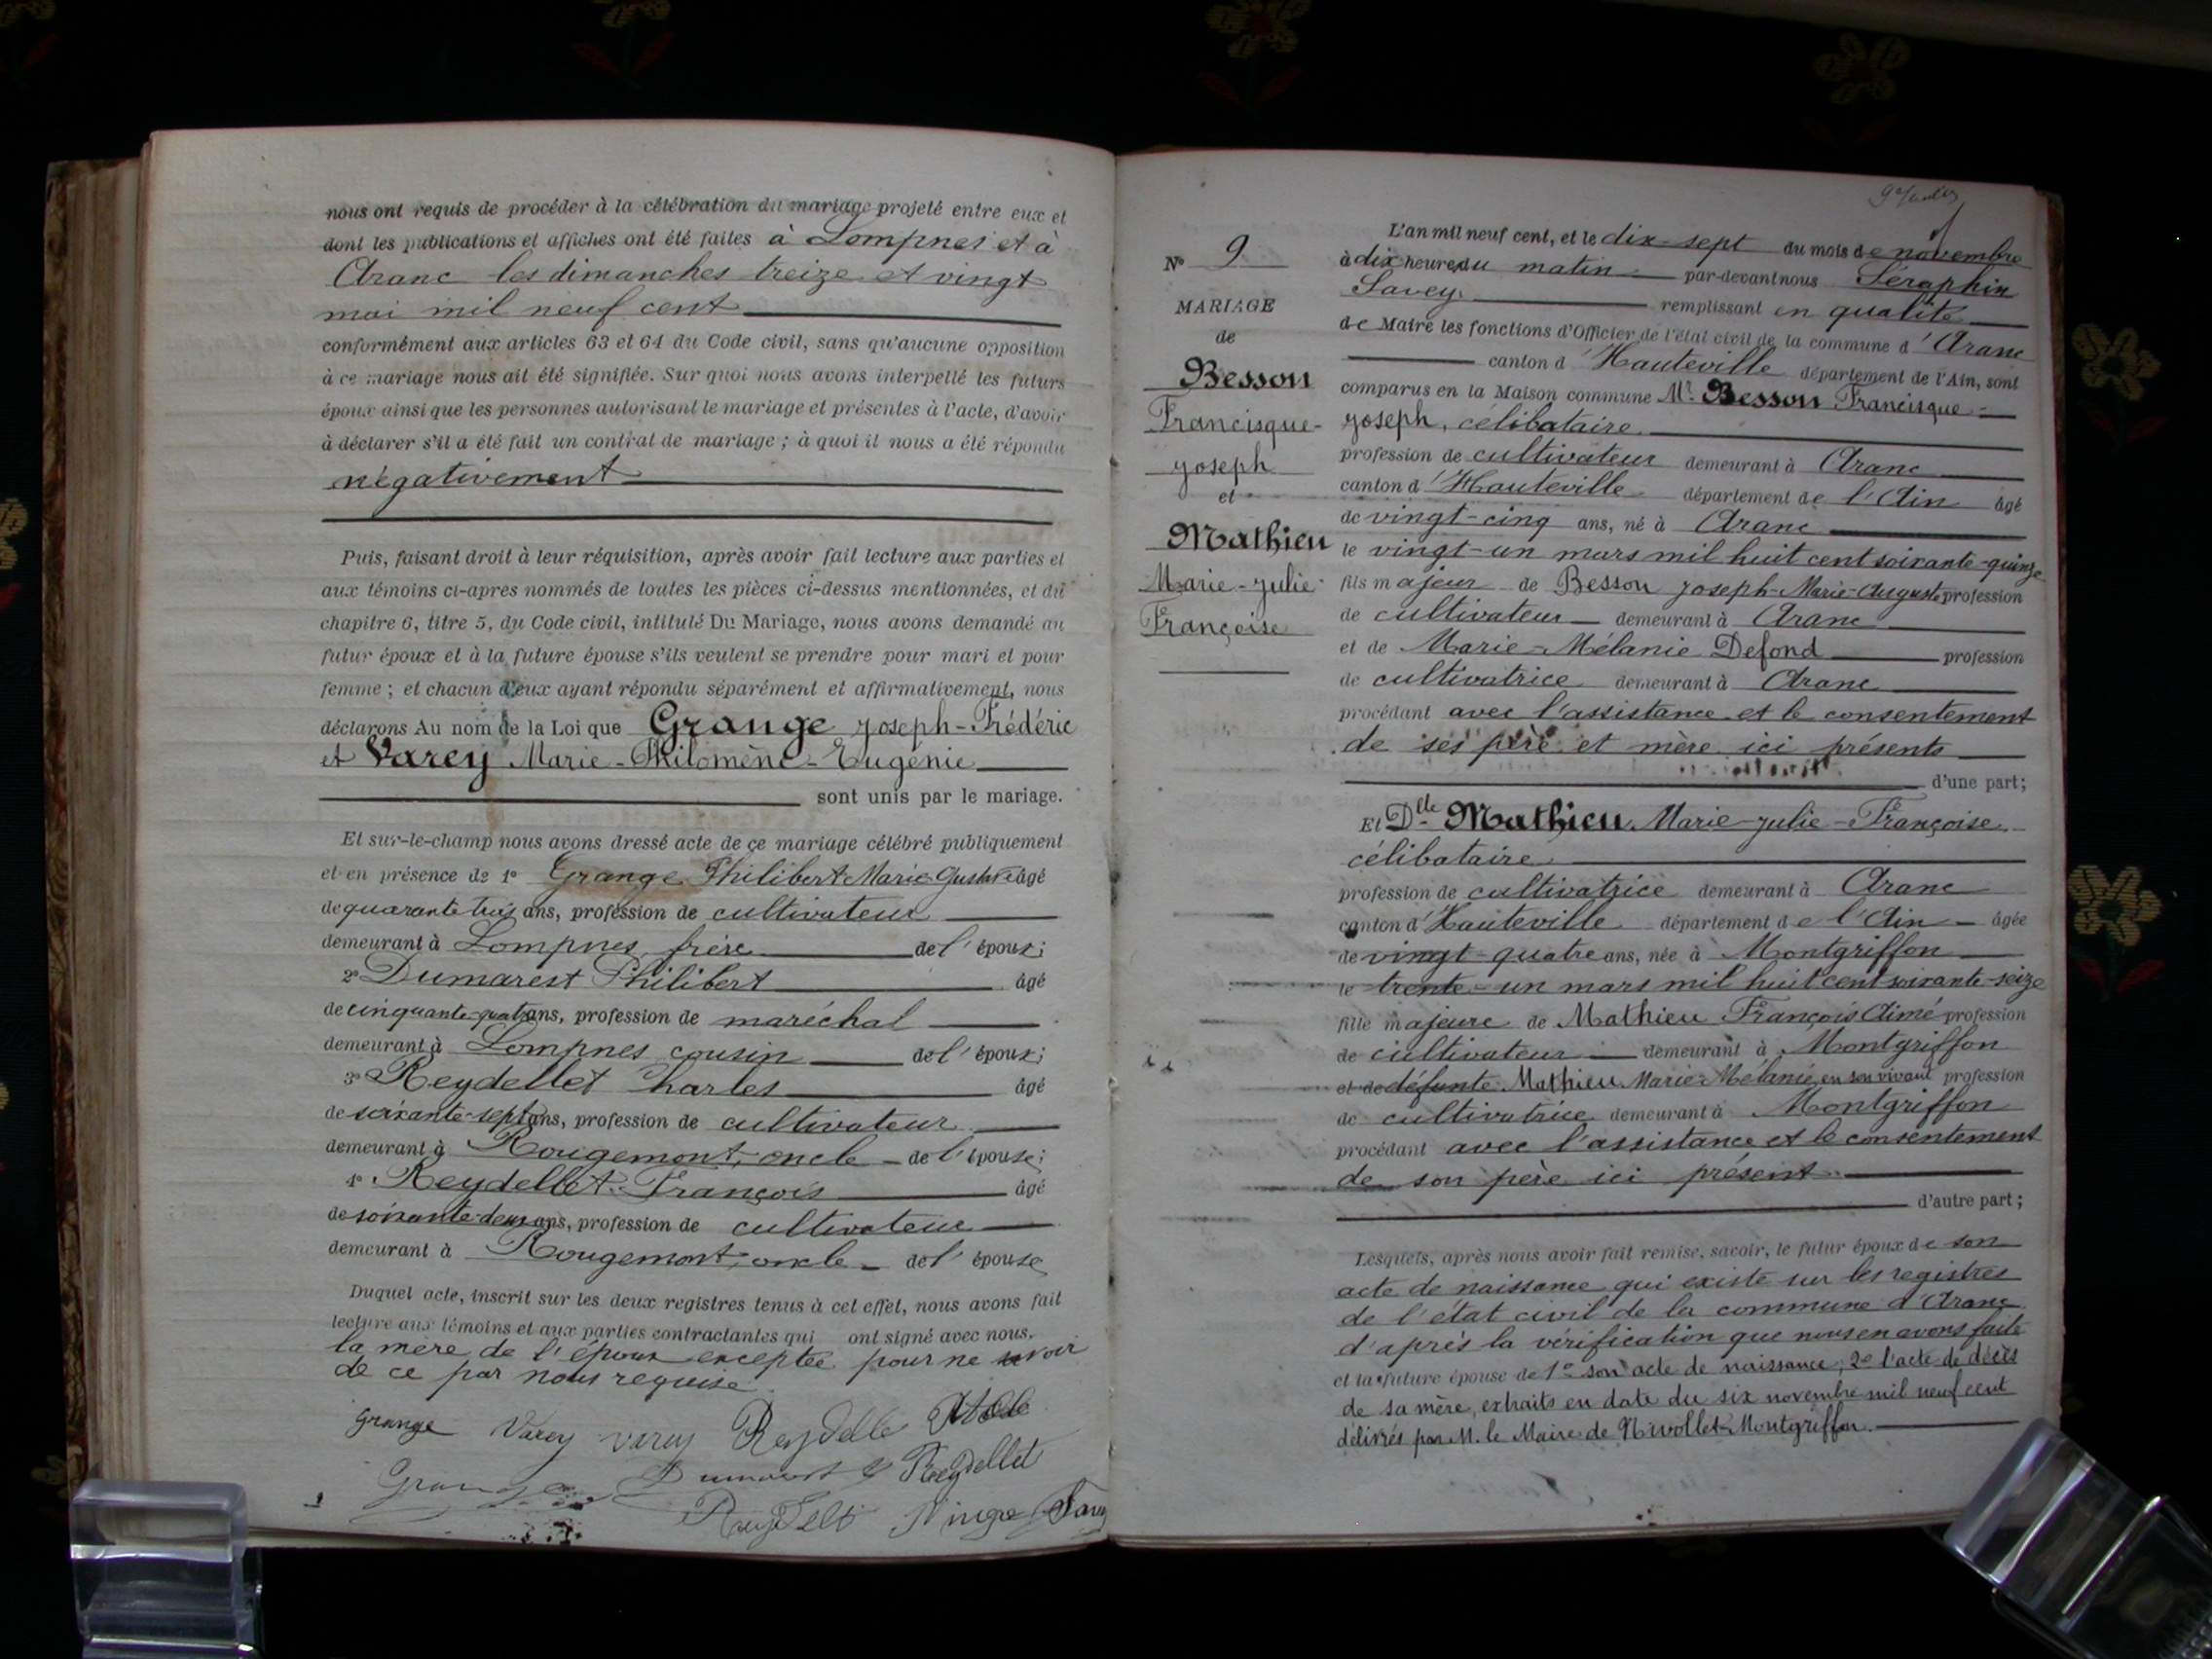 nous ont requis de procéder à la célébration du mariage projeté entre eux et
dont les publications et affiches ont été faites à Lompnes et à
Aranc les dimanches treize et vingt
mai mil neuf cent
conformément aux articles 63 et 64 du Code civil, sans qu'aucune opposition
à ce mariage nous ait été signifiée. Sur quoi nous avons interpellé les futurs
époux ainsi que les personnes autorisant le mariage et présentes à l'acte, d'avoir
à déclarer s'il a été fait un contrat de mariage ; à quoi il nous a été répondu
négativement
Puis, faisant droit à leur réquisition, après avoir fait lecture aux parties et
aux témoins ci-après nommés de toutes les pièces ci-dessus mentionnées, et du
chapitre 6, titre 5, du Code civil, intitulé Du Mariage, nous avons demandé au
futur époux et à la future épouse s'ils veulent se prendre pour mari et pour
femme ; et chacun d'eux ayant répondu séparément et affirmativement, nous
déclarons Au nom de la Loi que Grange Joseph-Frédéric
et Varey Marie-Philomène-Eugénie
sont unis par le mariage.
Et sur-le-champ nous avons dressé acte de ce mariage célébré publiquement
et en présence de 1° Grange Philibert-Marie-Gustave âgé
de quarante trois ans, profession de cultivateur
demeurant à Lompnes, frère de l'époux;
2° Dumarest Philibert âgé
de cinquante-quatre ans, profession de maréchal
demeurant à Lompnes cousin de l'époux;
3° Reydellet Charles âgé
de soixante-sept ans, profession de cultivateur
demeurant à Rougemont, oncle de l'épouse;
4° Reydellet François âgé
de soixante-deux ans, profession de cultivateur
demeurant à Rougemont, oncle de l'épouse
Duquel acte, inscrit sur les deux registres tenus à cet effet, nous avons fait
lecture aux témoins et aux parties contractantes qui ont signé avec nous.
la mère de l'époux exceptée pour ne savoir
de ce par nous requise
Grange Varey Varey Reydelle
Grange Dumarest Reydellet
Savey
N° 9
MARIAGE
de
Besson
Francisque-
Joseph
et
Mathieu
Marie-Julie
Françoise
L'an mil neuf cent, et le dix-sept du mois de novembre
à dix heures du matin par-devant nous Séraphin
Savey remplissant en qualité
de Maire les fonctions d'Officier de l'état civil de la commune d'Aranc
canton d'Hauteville département de l'Ain, sont
comparus en la Maison commune Mr Besson Francisque-
Joseph, célibataire
profession de cultivateur demeurant à Aranc
canton d'Hauteville département de l'Ain âgé
de vingt-cinq ans, né à Aranc
le vingt-un mars mil huit cent soixante-quinze
fils majeur de Besson Joseph-Marie-Auguste profession
de cultivateur demeurant à Aranc
et de Marie-Mélanie Defond profession
de cultivatrice demeurant à Aranc
procédant avec l'assistance et le consentement
de ses père et mère ici présents
d'une part;
Et Dlle Mathieu Marie-Julie-Françoise
célibataire
profession de cultivatrice demeurant à Aranc
canton d'Hauteville département de l'Ain âgée
de vingt-quatre ans, née à Montgriffon
le trente-un mars mil huit cent soixante-seize
fille majeure de Mathieu François Aimé profession
de cultivateur demeurant à Montgriffon
et de défunte Mathieu Marie-Mélanie, en son vivant profession
de cultivatrice demeurant à Montgriffon
procédant avec l'assistance et le consentement
de son père ici présent
d'autre part;
Lesquels, après nous avoir fait remise, savoir, le futur époux de son
acte de naissance qui existe sur les registres
de l'état civil de la commune d'Aranc
d'après la vérification que nous en avons faite
et la future épouse de 1° son acte de naissance; 2° l'acte de décès
de sa mère, extraits en date du six novembre mil neuf cent
délivrés par M. le Maire de Nivollet-Montgriffon.